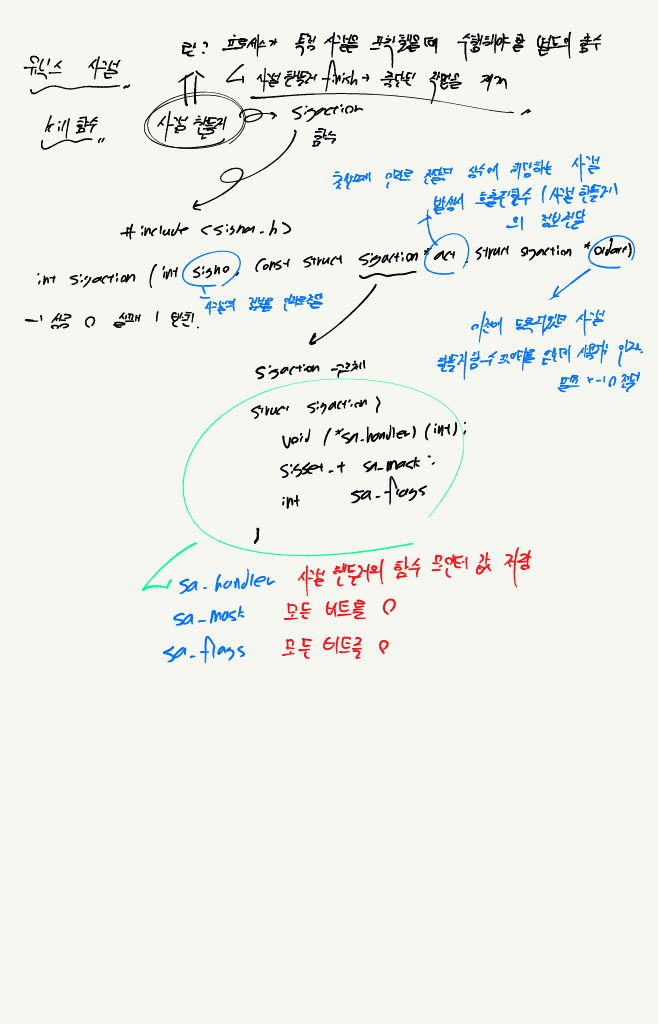 란? 프로세스가 특정 시그널을 포착했을때 수행해야 할 별도의 함수
유닉스 시그널
↳ 시그널 핸들러 finish → 중단된 작업을 재개
kill 함수
시그널 핸들러 → sigaction
함수
첫번째 인자로 전달된 상수에 해당하는 시그널
발생시 호출될함수 (시그널 핸들러)
의 정보전달
#include <signal.h>
int sigaction (int signo, const struct sigaction * act, struct sigaction * oldact)
시그널의 정보를 인자로전달
→ 성공 0 실패 1 반환.
이전에 등록되었던 시그널
핸들러함수 포인터를 얻는데 사용하는 인자.
필요 x → 0 전달
sigaction 구조체
struct sigaction }
void (*sa_handler) (int);
sigset_t sa_mask;
int sa_flags
}
sa_handler 시그널 핸들러의 함수 포인터 값 저장
sa_mask 모든 비트를 0
sa_flags 모든 비트를 0